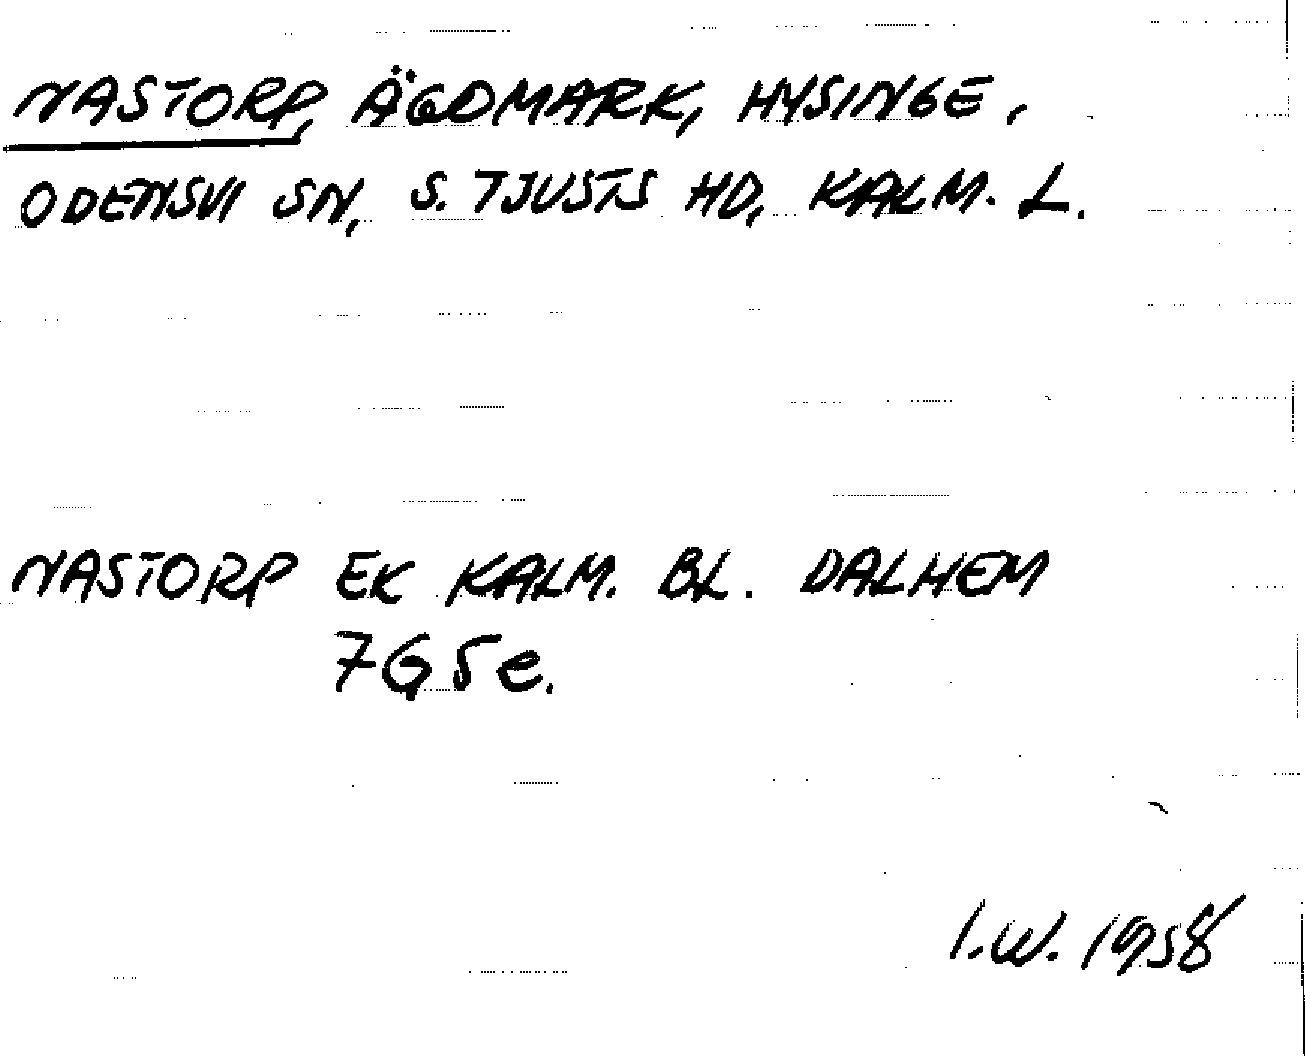 NASTORP, ÄGDMARK, HYSINGE,
ODENSVI SN, S. TJUSTS HD, KALM. L.
NASTORP EK KALM. BL. DALHEM
7G5e.
I.W. 1958